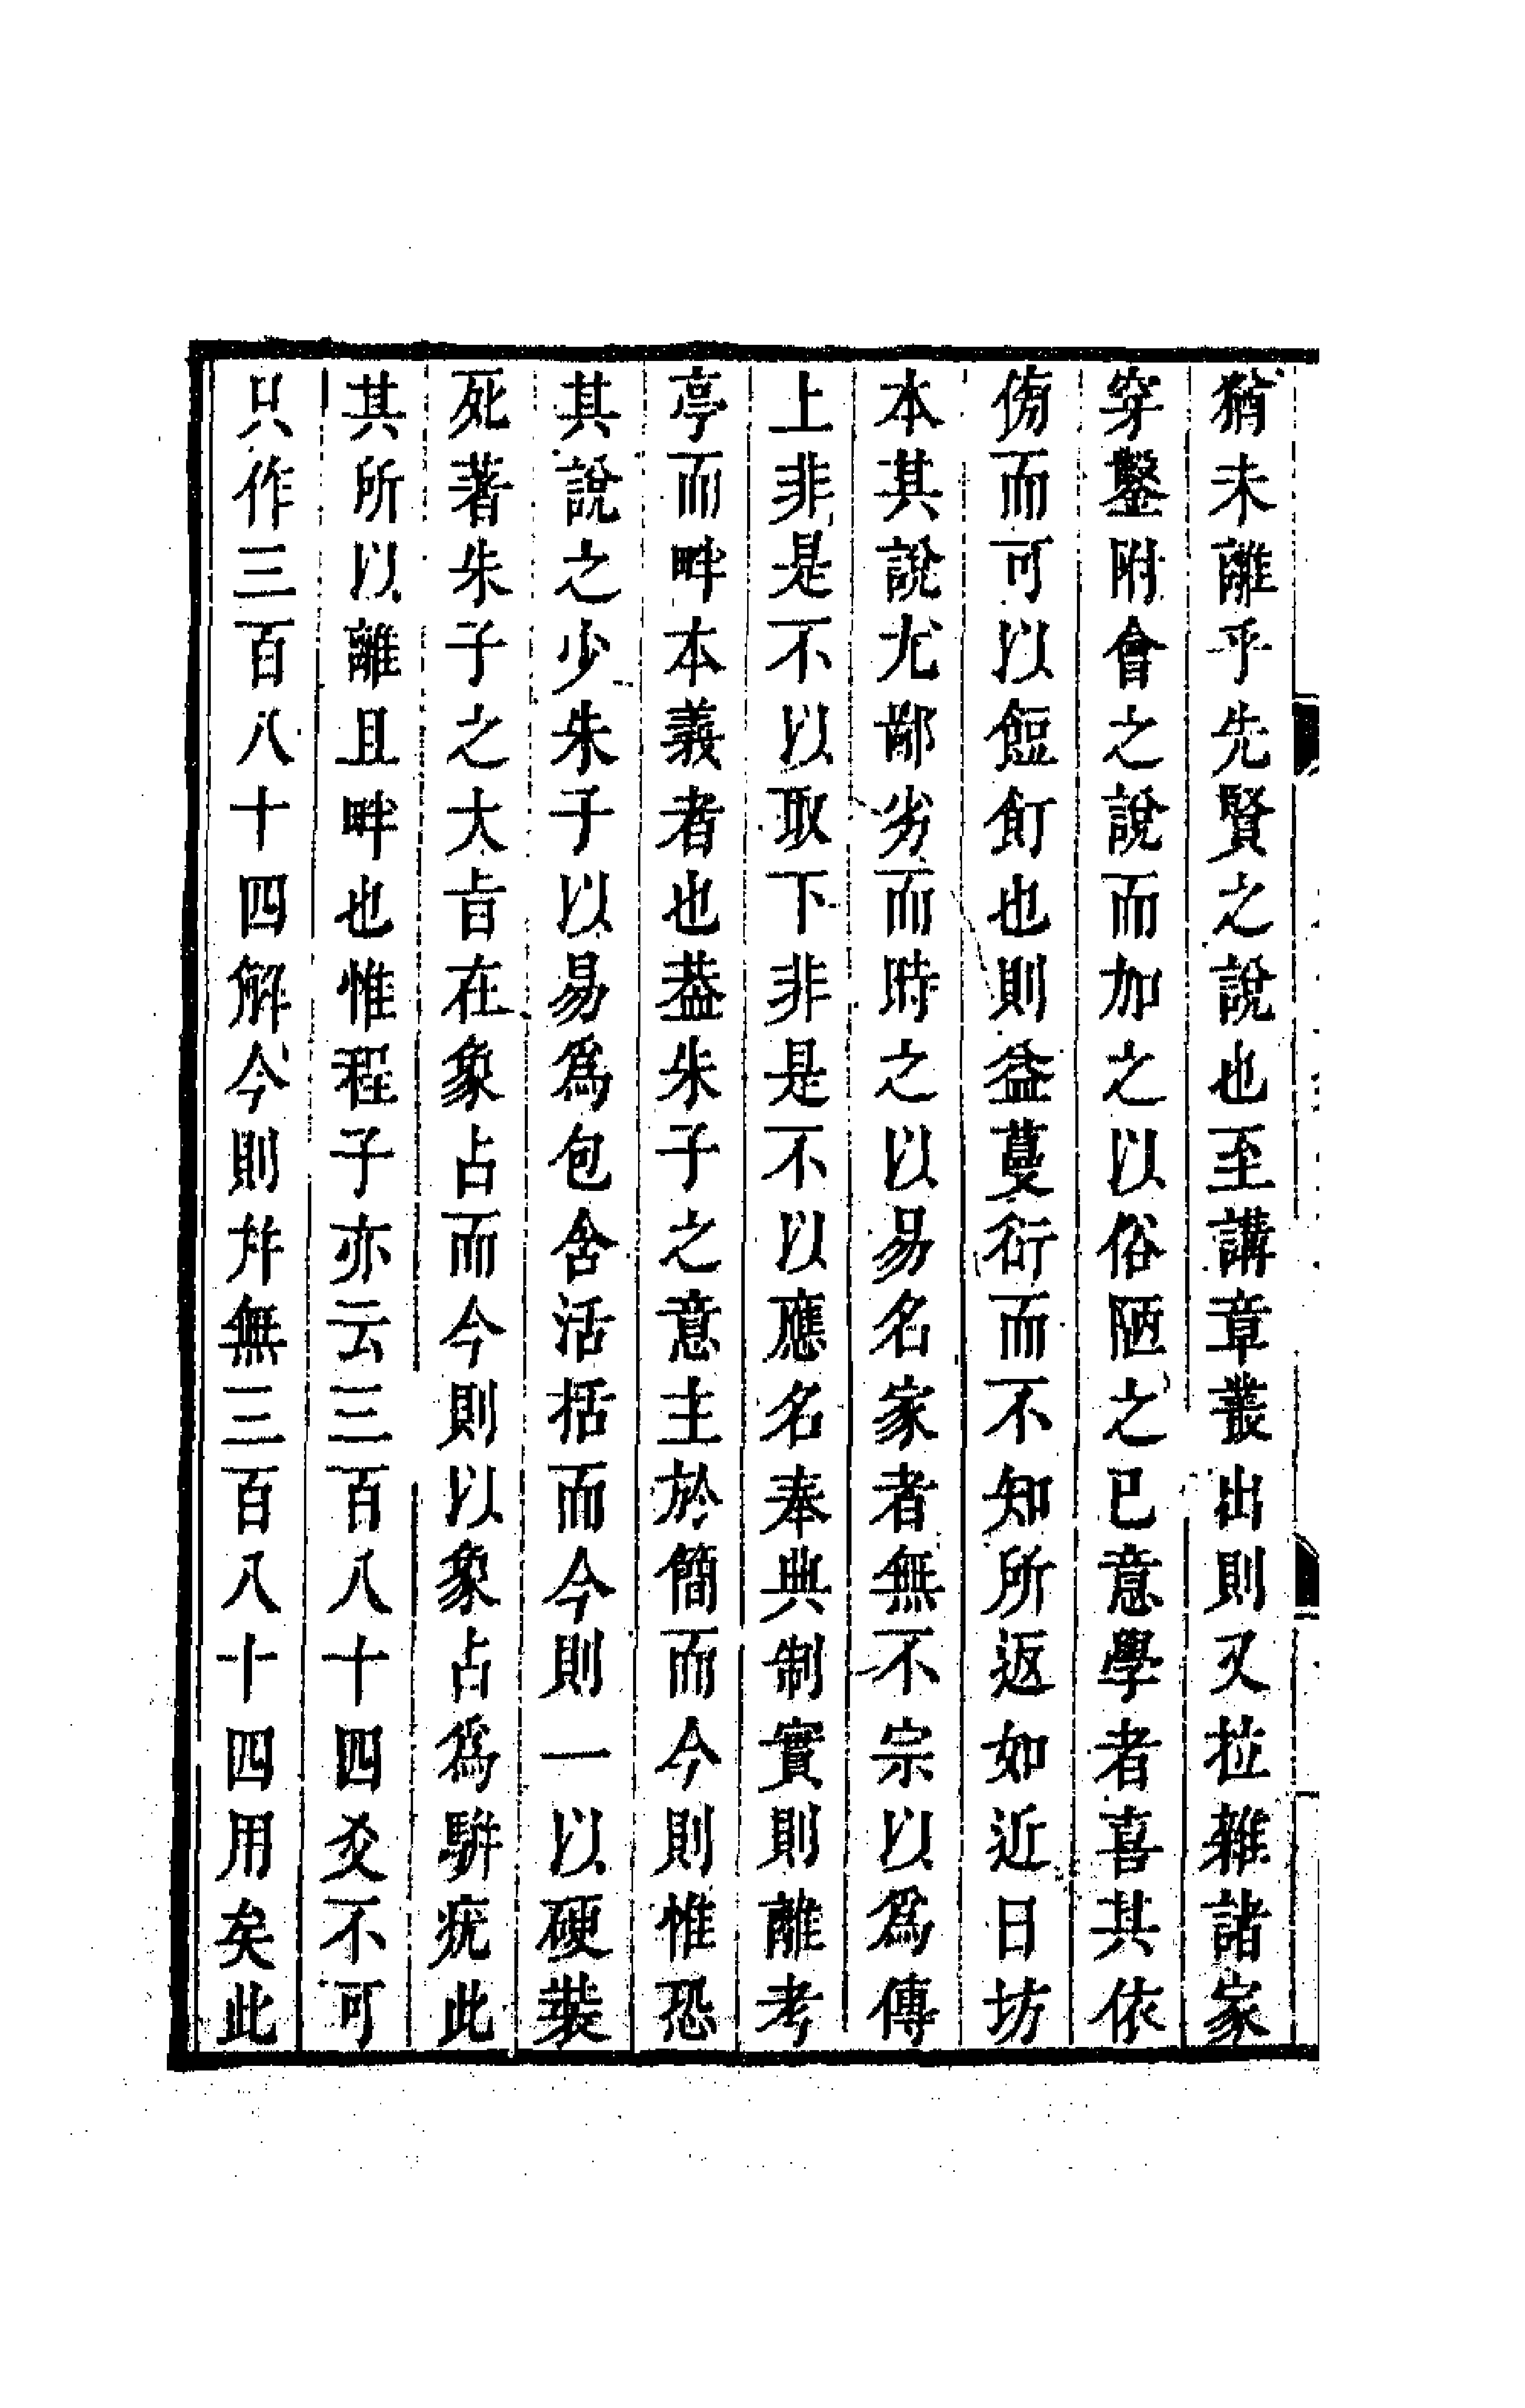 猶未離乎先賢之說也至講章叢出則又拉雜諸家
穿鑿附會之說而加之以俗陋之已意學者喜其依
傍而可以餖飣也則益蔓衍而不知所返如近日坊
本其說尤鄙劣而時之以易名家者無不宗以爲傳
上非是不以取下非是不以應名奉典制實則離考
亭而畔本義者也葢朱子之意主於簡而今則惟恐
其說之少朱子以易爲包含活括而今則一以硬裝
死著朱子之大旨在象占而今則以象占爲駢疣此
其所以離且畔也惟程子亦云三百八十四爻不可
只作三百八十四解今則并無三百八十四用矣此